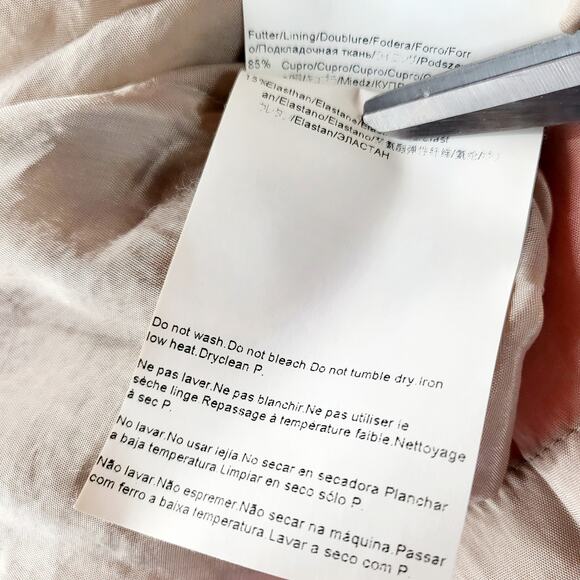 Futter/Lining/Doublure/Fodera/Forro/Forr
o/Подкладочная ткань/ /Podsze
85% Cupro/Cupro/Cupro/Cupro/C
/Miedz/КУПР
Elasthan/Elastane/Elas
an/Elastano/Elastano/
/Elastan/ЭЛАСТАН
Do not wash.Do not bleach.Do not tumble dry.Iron
low heat.Dryclean P.
Ne pas laver.Ne pas blanchir.Ne pas utiliser le
sèche linge Repassage à température faible.Nettoyage
à sec P.
No lavar.No usar lejía.No secar en secadora Planchar
a baja temperatura Limpiar en seco sólo P.
Não lavar.Não espremer.Não secar na máquina.Passar
com ferro a baixa temperatura.Lavar a seco com P.